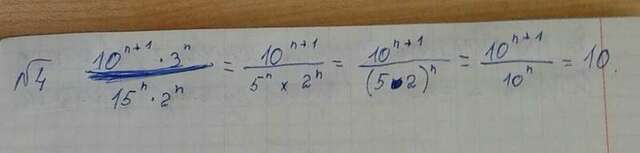 √4 10^{n+1} · 3^n / 15^n · 2^n = 10^{n+1} / 5^n × 2^n = 10^{n+1} / (5·2)^n = 10^{n+1} / 10^n = 10.